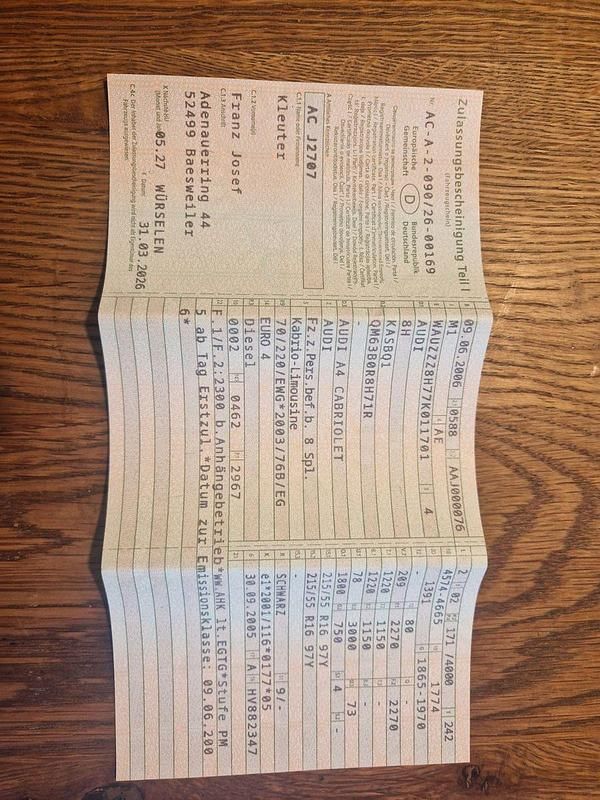 Zulassungsbescheinigung Teil I
(Fahrzeugschein)
Nr. AC-A-2-090/26-00169
Europäische Gemeinschaft
D
Bundesrepublik Deutschland
AC J2707
C.1.1 Name oder Firmenname
Kleuter
C.1.2 Vorname(n)
Franz Josef
C.1.3 Anschrift
Adenauerring 44
52499 Baesweiler
05.27 WÜRSELEN
31.03.2026
09.06.2006 0588 AAJ000076
M1 AE
WAUZZZ8H77K011701 4
AUDI
8H
KASBQ1
QM63B0R8H71R
-
AUDI A4 CABRIOLET
AUDI
Fz.z.Pers.bef.b. 8 Spl.
Kabrio-Limousine
70/220/EWG*2003/76B/EG
EURO 4
Diesel
0002 0462 2967
2 02 171 /4000 242
4574-4665 1774
1391 1865-1970
- 80 -
209 2270 2270
1220 1150 -
1220 1150 -
78 3000 73
1800 750 4 -
215/55 R16 97Y
215/55 R16 97Y
-
SCHWARZ 9/-
e1*2001/116*0177*05
30.09.2005 A HV882347
F.1/F.2:2300 b.Anhängebetrieb*WW.AHK lt.EGTG*Stufe PM
5 ab Tag Erstzul.*Datum zur Emissionsklasse: 09.06.200
6*